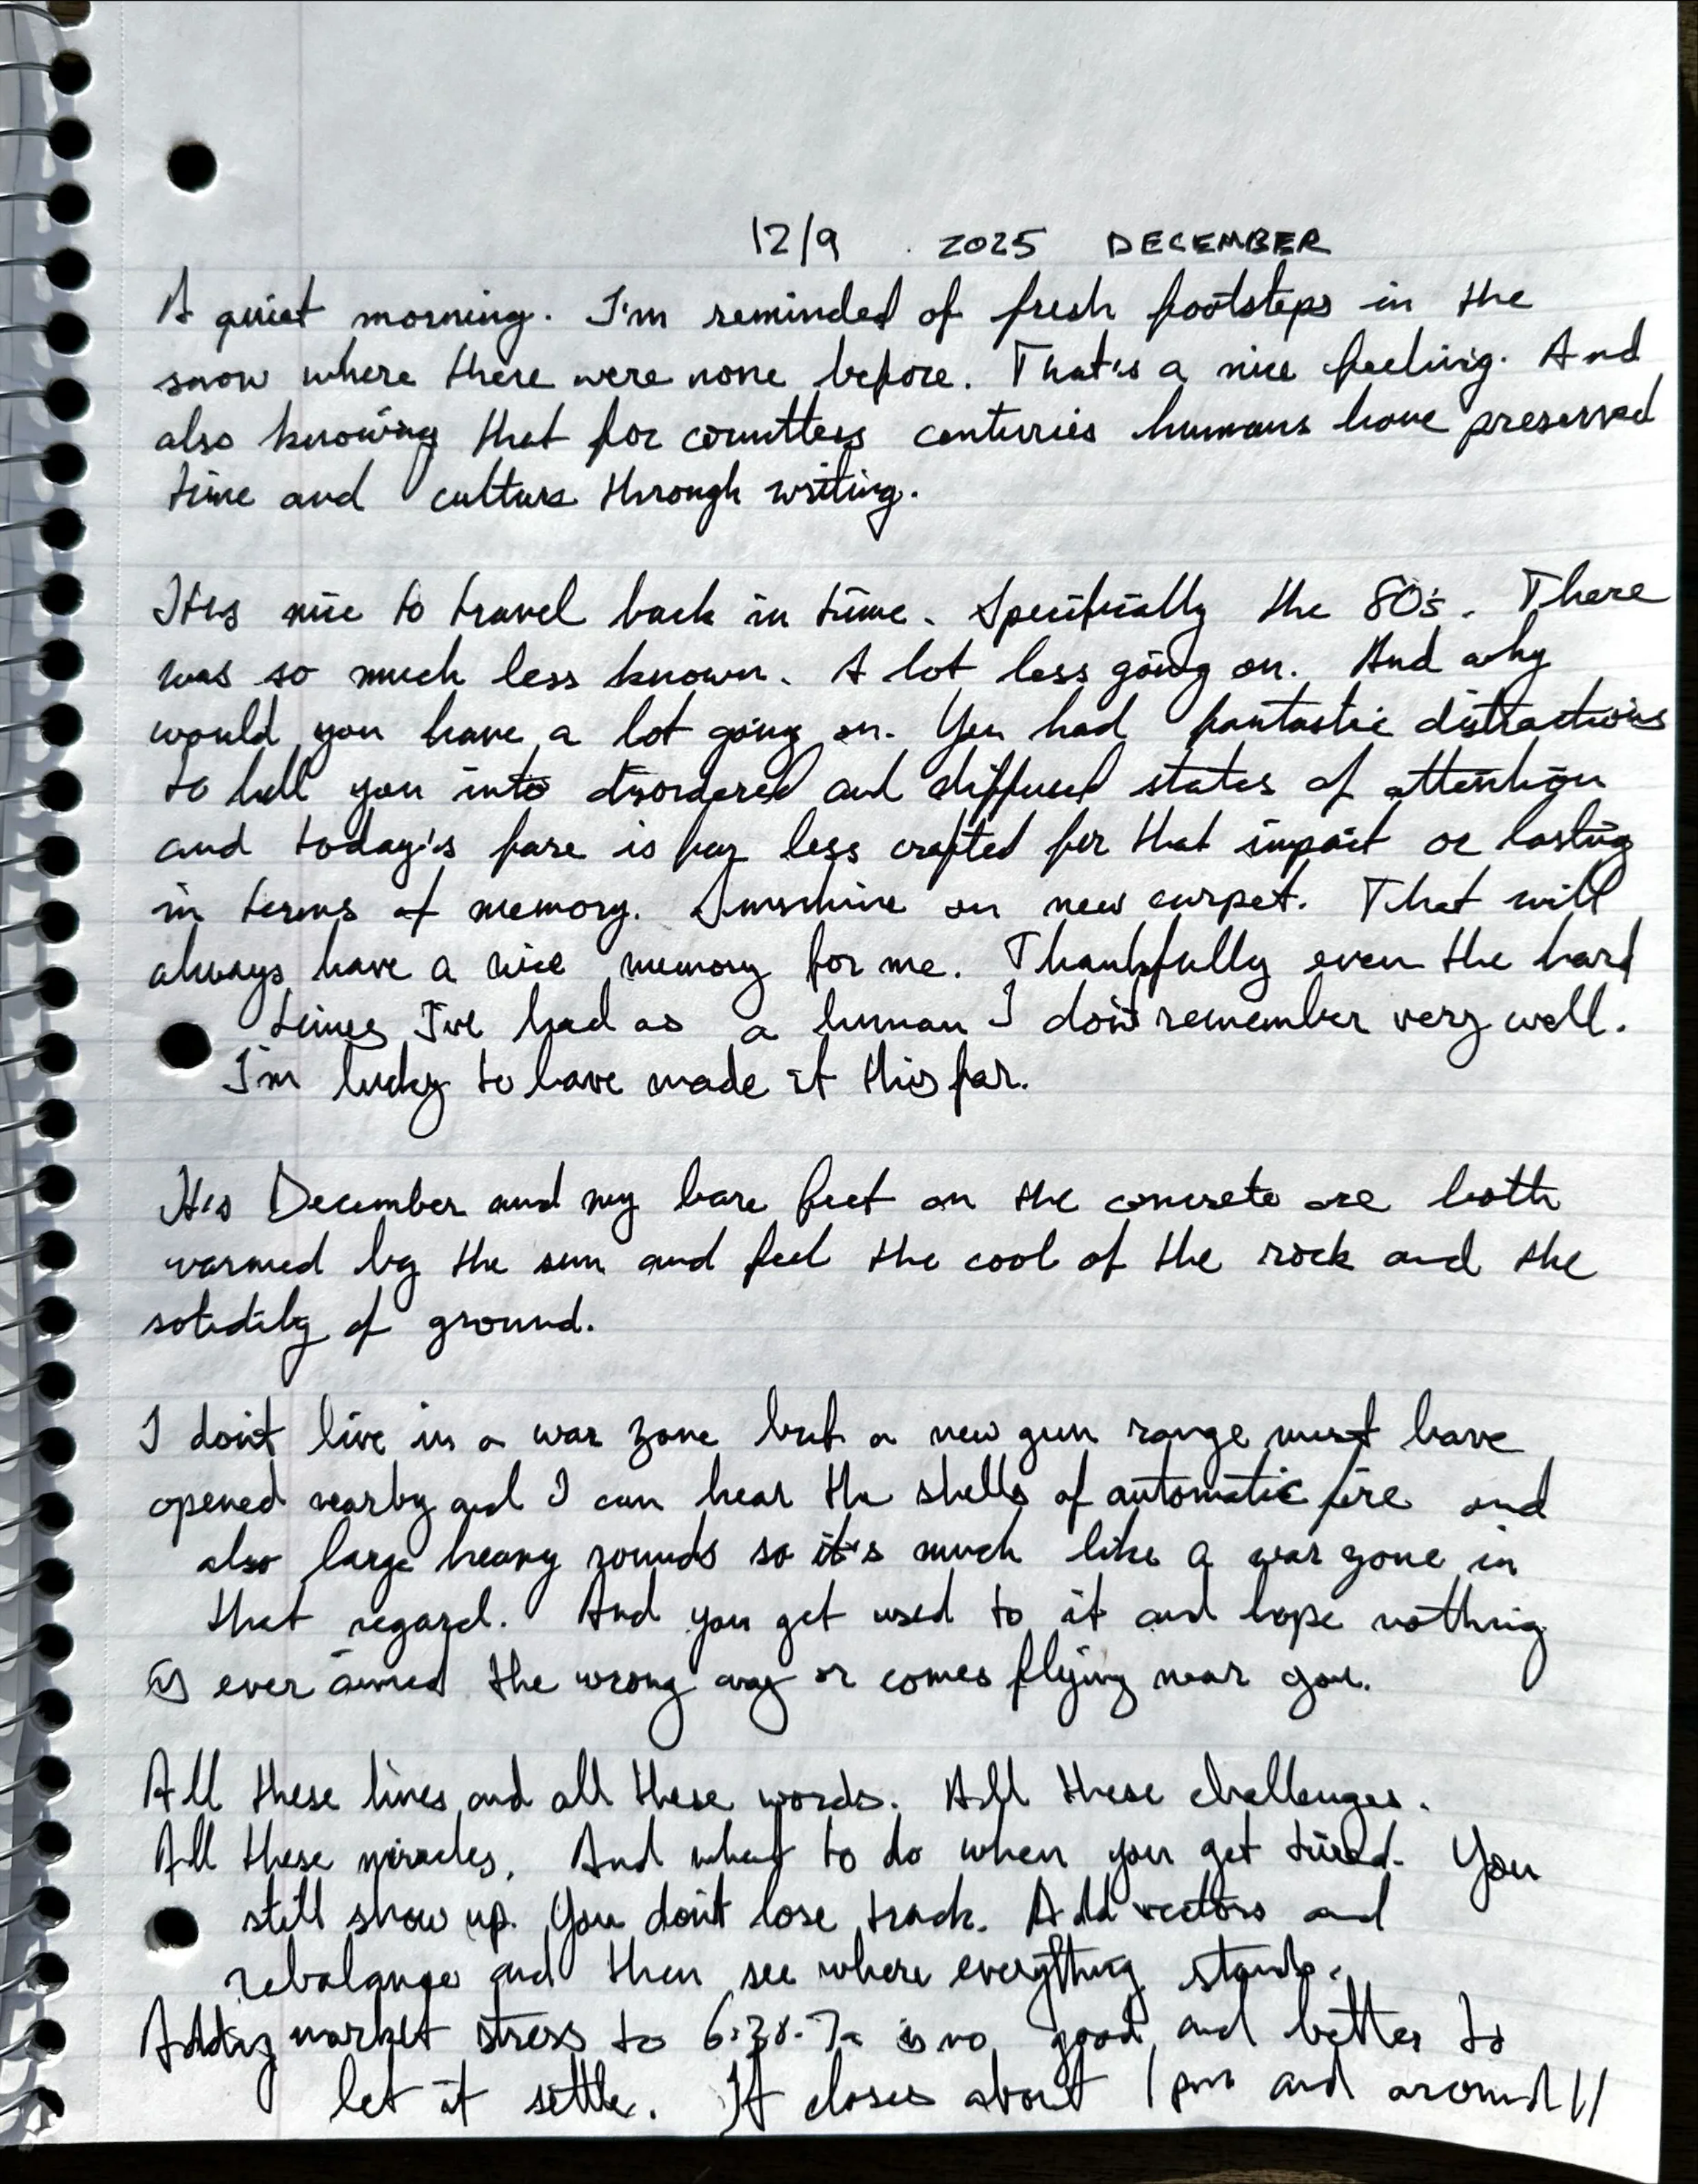 12/9 . 2025 DECEMBER
A quiet morning. I'm reminded of fresh footsteps in the
snow where there were none before. That's a nice feeling. And
also knowing that for countless centuries humans have preserved
time and culture through writing.
It's nice to travel back in time. Specifically the 80's. There
was so much less known. A lot less going on. And why
would you have a lot going on. You had fantastic distractions
to lull you into disordered and diffused states of attention
and today's fare is far less crafted for that impact or lasting
in terms of memory. Sunshine on new carpet. That will
always have a nice memory for me. Thankfully even the hard
times I've had as a human I don't remember very well.
I'm lucky to have made it this far.
It's December and my bare feet on the concrete are both
warmed by the sun and feel the cool of the rock and the
solidity of ground.
I don't live in a war zone but a new gun range must have
opened nearby and I can hear the shells of automatic fire and
also large heavy rounds so it's much like a war zone in
that regard. And you get used to it and hope nothing
is ever aimed the wrong way or comes flying near you.
All these lines and all these words. All these challenges.
All these miracles. And what to do when you get tired. You
still show up. You don't lose track. Add vectors and
rebalance and then see where everything stands.
Adding market stress to 6:30-7a is no good and better to
let it settle. It closes about 1pm and around 11